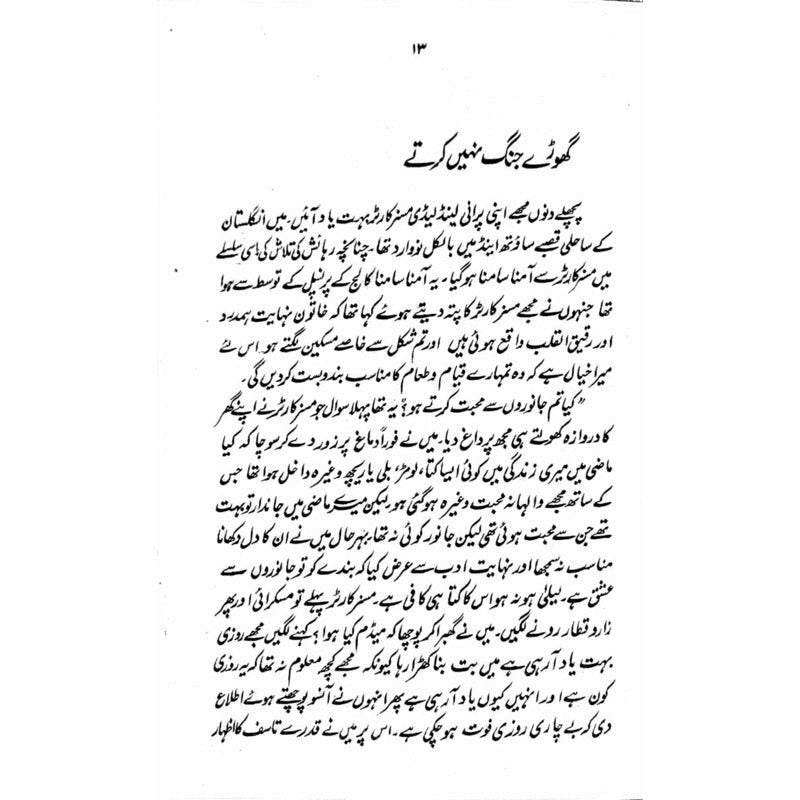 ۱۳
گھوڑے جنگ نہیں کرتے
پچھلے دنوں مجھے اپنی پرانی لینڈ لیڈی مسز کارٹر بہت یاد آئیں۔ میں انگلستان
کے ساحلی قصبے ساؤتھ اینڈ میں بالکل نووارد تھا۔ چنانچہ رہائش کی تلاش کی ہی سلسلے
میں مسز کارٹر سے آمنا سامنا ہوگیا۔ یہ آمنا سامنا کالج کے پرنسپل کے توسط سے ہوا
تھا جنہوں نے مجھے مسز کارٹر کا پتہ دیتے ہوئے کہا تھا کہ خاتون نہایت ہمدرد
اور رقیق القلب واقع ہوئی ہیں اور تم شکل سے خاصے مسکین لگتے ہو اس لئے
میرا خیال ہے کہ وہ تمہارے قیام و طعام کا مناسب بندوبست کردیں گی۔
"کیا تم جانوروں سے محبت کرتے ہو؟" یہ تھا پہلا سوال جو مسز کارٹر نے اپنے گھر
کا دروازہ کھولتے ہی مجھ پر داغ دیا۔ میں نے فوراً دماغ پر زور دے کر سوچا کہ کیا
ماضی میں میری زندگی میں کوئی ایسا کتا، لومڑ، بلی یا ریچھ وغیرہ داخل ہوا تھا جس
کے ساتھ مجھے والہانہ محبت وغیرہ ہوگئی ہو لیکن میرے ماضی میں جاندار تو بہت
تھے جن سے محبت ہوئی تھی لیکن جانور کوئی نہ تھا۔ بہرحال میں نے ان کا دل دکھانا
مناسب نہ سمجھا اور نہایت ادب سے عرض کیا کہ بندے کو تو جانوروں سے
عشق ہے۔ لیلیٰ ہو نہ ہو اس کا کتا ہی کافی ہے۔ مسز کارٹر پہلے تو مسکرائی اور پھر
زار و قطار رونے لگیں۔ میں نے گھبرا کر پوچھا کہ میڈم کیا ہوا؟ کہنے لگیں مجھے روزی
بہت یاد آرہی ہے میں بت بنا کھڑا رہا کیونکہ مجھے کچھ معلوم نہ تھا کہ یہ روزی
کون ہے اور انہیں کیوں یاد آرہی ہے پھر انہوں نے آنسو پوچھتے ہوئے اطلاع
دی کہ بے چاری روزی فوت ہوچکی ہے۔ اس پر میں نے قدرے تاسف کا اظہار